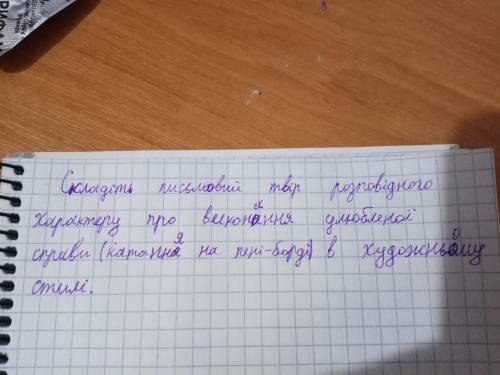 Складіть письмовий твір розповідного
характеру про виконання улюбленої
справи (катання на пені-борді) в художньому
стилі.